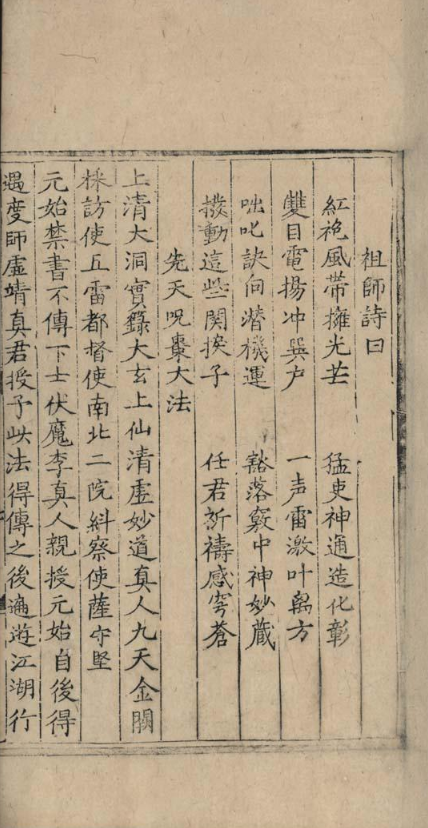 祖師詩曰
紅袍風帶擁光芒　猛吏神通造化彰
雙目電揚冲巽户　一声雷激叶萬方
咄叱訣向潜機運　豁落竅中神妙蔵
撥動這些関捩子　任君祈禱感穹蒼
先天咒棗大法
上清大洞寳籙大玄上仙清虚妙道真人九天金闕
採訪使五雷都督使南北二院糾察使薩守堅
元始禁書不傳下士伏魔李真人親授元始自後得
遇度師虚靖真君授予此法得傳之後遍遊江湖行